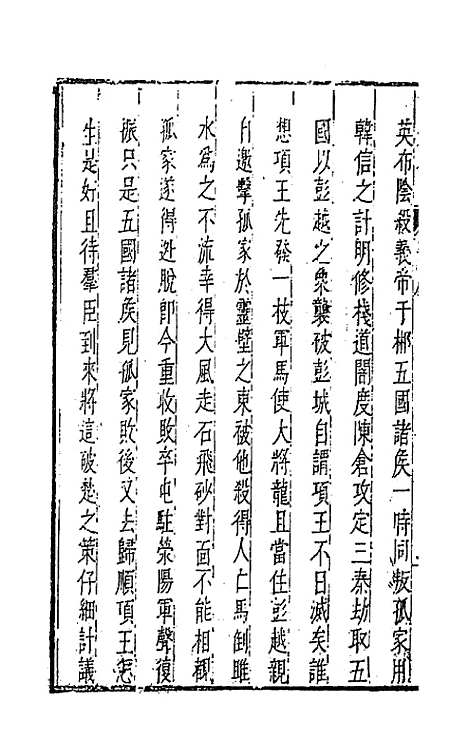 英布陰殺義帝于郴五國諸侯一時同叛孤家用
韓信之計明修棧道闇度陳倉攻定三秦劫取五
國以彭越之衆襲破彭城自謂項王不日滅矣誰
想項王先發一枝軍馬使大將龍且當住彭越親
自邀擊孤家於靈壁之東被他殺得人亡馬倒雎
水爲之不流幸得大風走石飛砂對面不能相覩
孤家遂得逃脫即今重收敗卒屯駐滎陽軍聲復
振只是五國諸侯見孤家敗後又去歸順項王怎
生是好且待羣臣到來將這破楚之策仔細計議